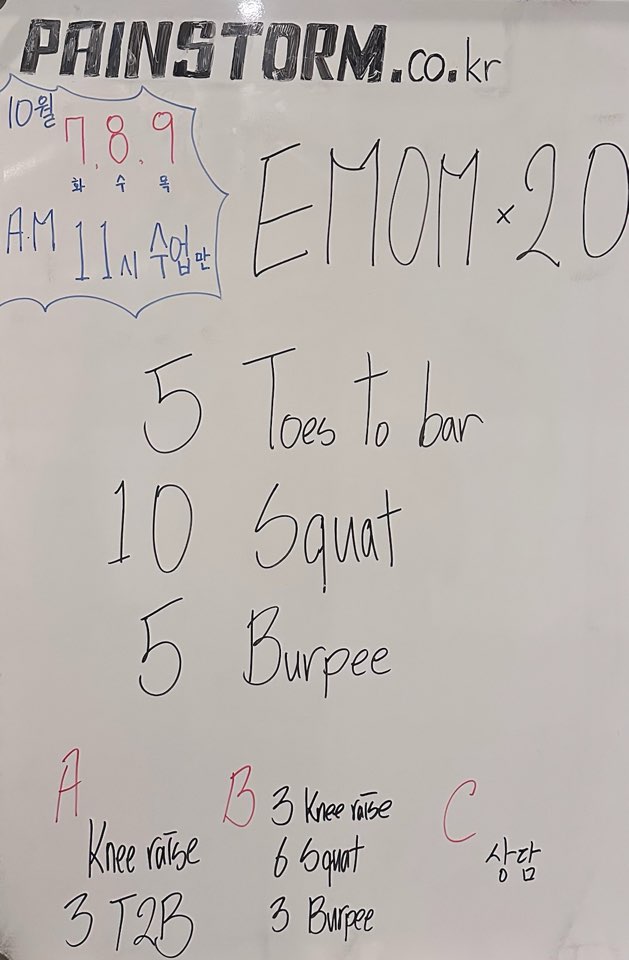 PAINSTORM.co.kr
10월
7.8.9
화 수 목
A.M 11시 수업만
EMOM x 20
5 Toes to bar
10 Squat
5 Burpee
A
Knee raise
3 T2B
B
3 Knee raise
6 Squat
3 Burpee
C
상담